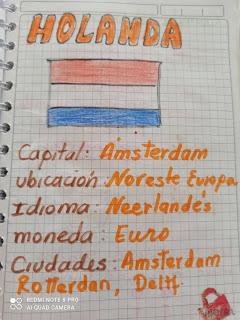 HOLANDA
Capital: Amsterdam
ubicación: Noreste Europa
Idioma: Neerlandés
moneda: Euro
Ciudades: Amsterdam
Rotterdan, Delft.
REDMI NOTE 8 PRO
AI QUAD CAMERA